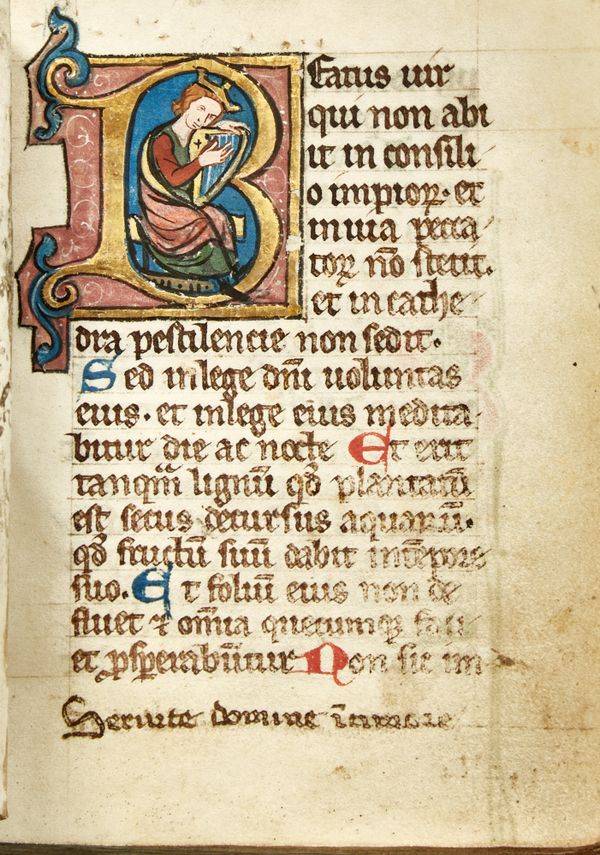 Beatus uir
qui non abi
it in consili
o impioꝝ. et
in uia pecca
toꝝ nō stetit.
et in cathe
dra pestilencie non sedit.
Sed in lege dn̄i uoluntas
eius. et in lege eius medita
bitur die ac nocte Et erit
tanqm̄ lignū qd̄ plantatū
est secus decursus aquarū.
qd̄ fructū suū dabit in tēpore
suo. Et foliū eius non de
fluet ⁊ om̄ia quecumqꝫ faci
et ꝓsperabūtur Non sic im
Seruite domine in timore